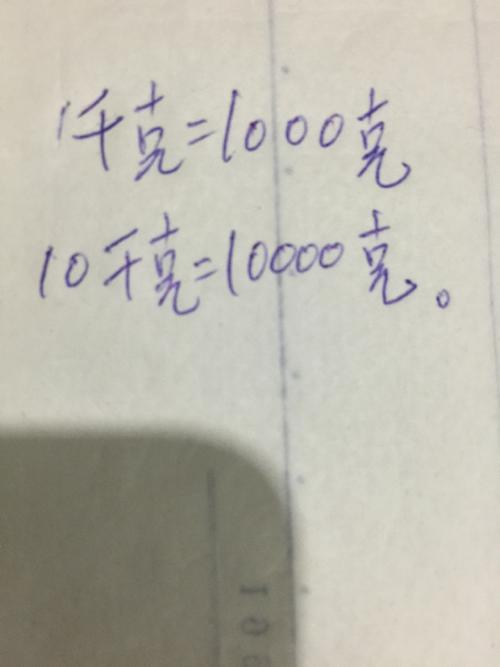 1千克=1000克
10千克=10000克。